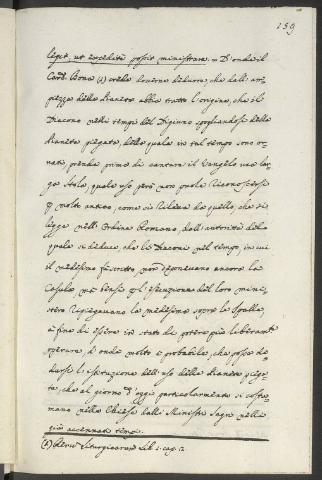 159
legit, ut expedite possit ministrare. = D'onde il
Card. Bona (1) crede doversi dedurre, che dall' am-
piezza della Pianeta abbia tratto l'origine, che il
Diacono nelli tempi del Digiuno spogliandosi della
Pianeta piegata, della quale in tal tempo sono or-
nati, prenda prima di cantare il Vangelo una lar-
ga stola, quale uso però non vuole riconoscersi
p molto antico, come si rileva da quello, che si
legge nell' Ordine Romano, dall' autorità della
quale si deduce, che li Diaconi nel tempo, in cui
il medesimo fu scritto, non deponevano ancora la
Casula, ma bensì p l'esecuzione del loro mini-
stero ripiegavano la medesima sopra le spalle,
a fine di essere in stato da potere più liberam.te
operare, d'onde molto è probabile, che possa de-
dursi l'istituzione dell' uso della Pianeta piega-
ta, che al giorno d'oggi particolarmente si costu-
mano nella Chiesa dalli Ministri Sagri nelli
già accennati tempi.
(1) Rerum Liturgicarum Lib. 1. cap.